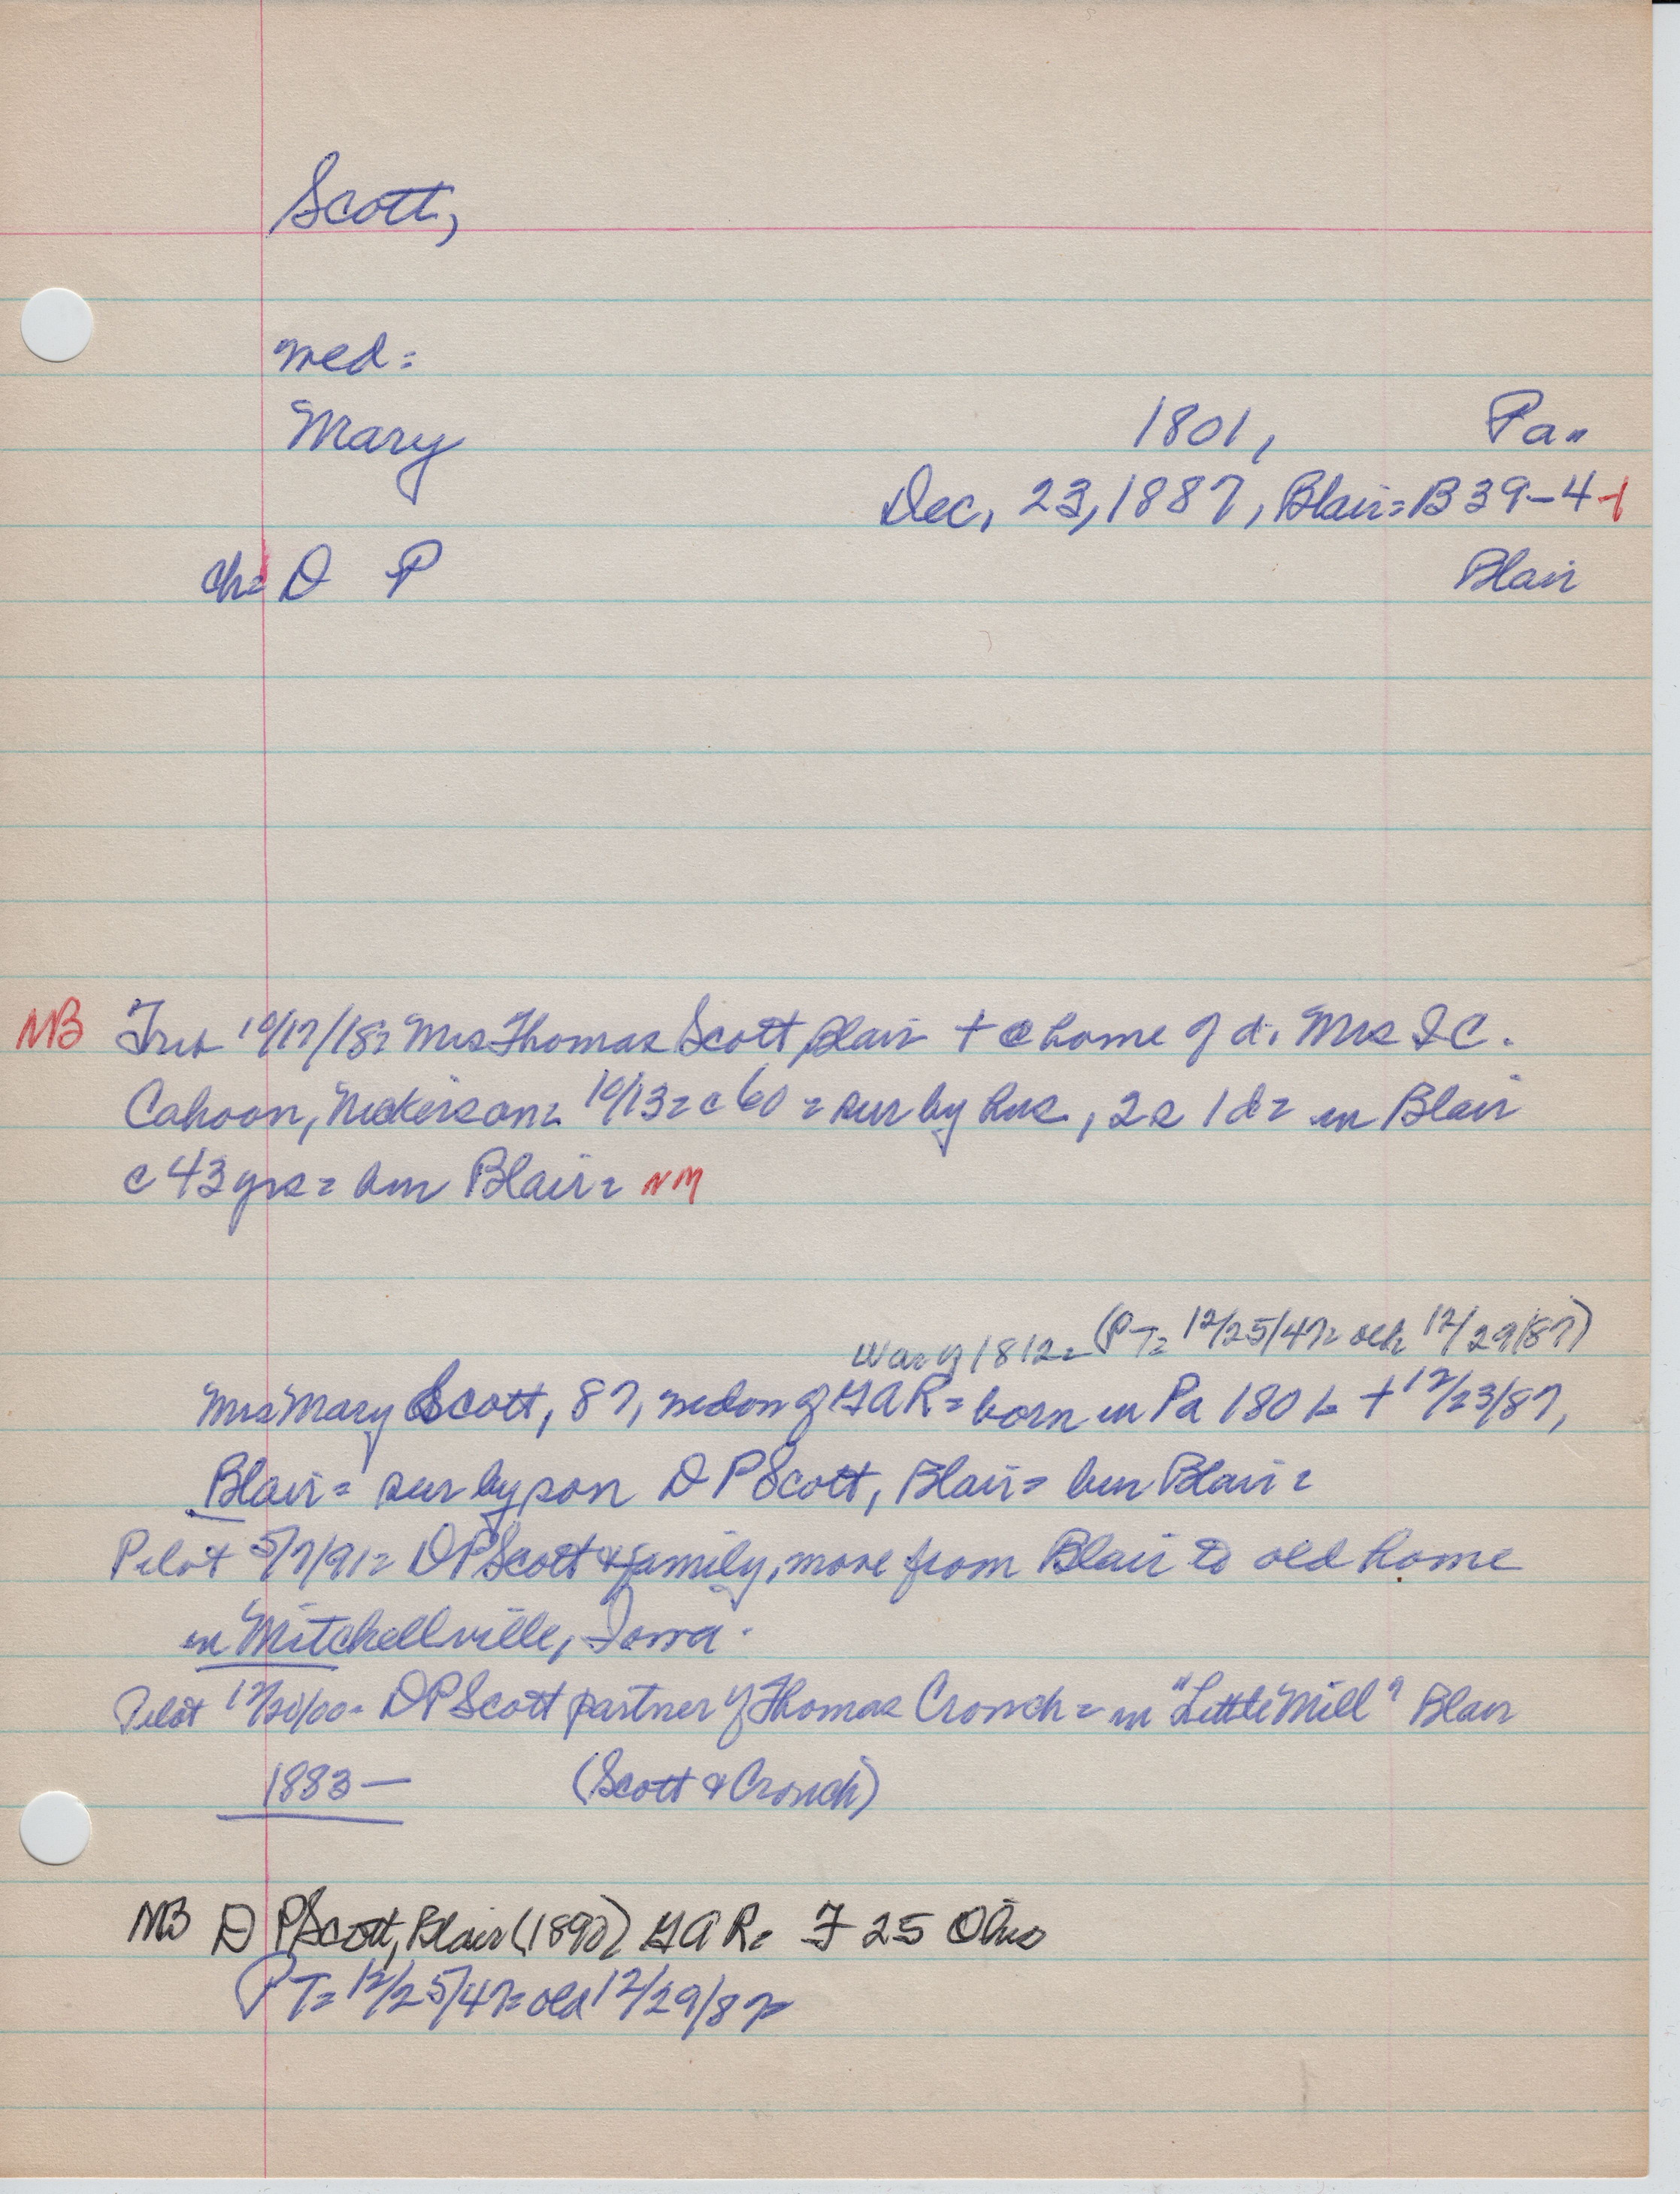 Scott,
med:
Mary 1801, Pa.
Dec, 23, 1887, Blair= B 39-4-1
ch= D P Blair
NB Trib 10/17/18= Mrs Thomas Scott, Blair + @ home of d. Mrs I C.
Cahoon, Nickerson= 10/13= c 60 = sur by hus, 2s 1d= in Blair
c 43 yrs = bur Blair= NM
War of 1812= (PT= 12/25/47= 12/29/87)
Mrs Mary Scott, 87, widow of GAR= born in Pa 1801= + 12/23/87,
Blair= sur by son D P Scott, Blair= bur Blair=
Pilot 5/7/91= D P Scott & family, move from Blair to old home
in Mitchellville, Iowa.
Pilot D P Scott partner of Thomas Crouch= in "Little Mill" Blair
1883— (Scott & Crouch)
NB D P Scott, Blair (1890) GAR= F 25 Ohio
PT= 12/25/47= old 12/29/87=